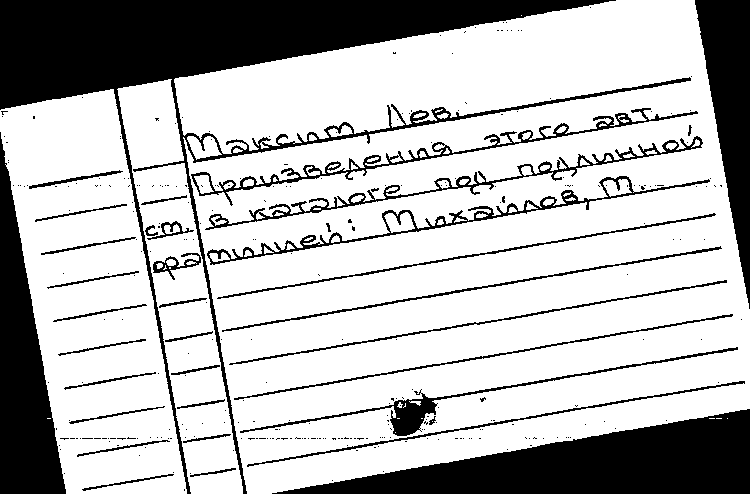 Максим, Лев.
Произведения этого авт.
ст. в каталоге под подлинной
фамилией: Михайлов, М.